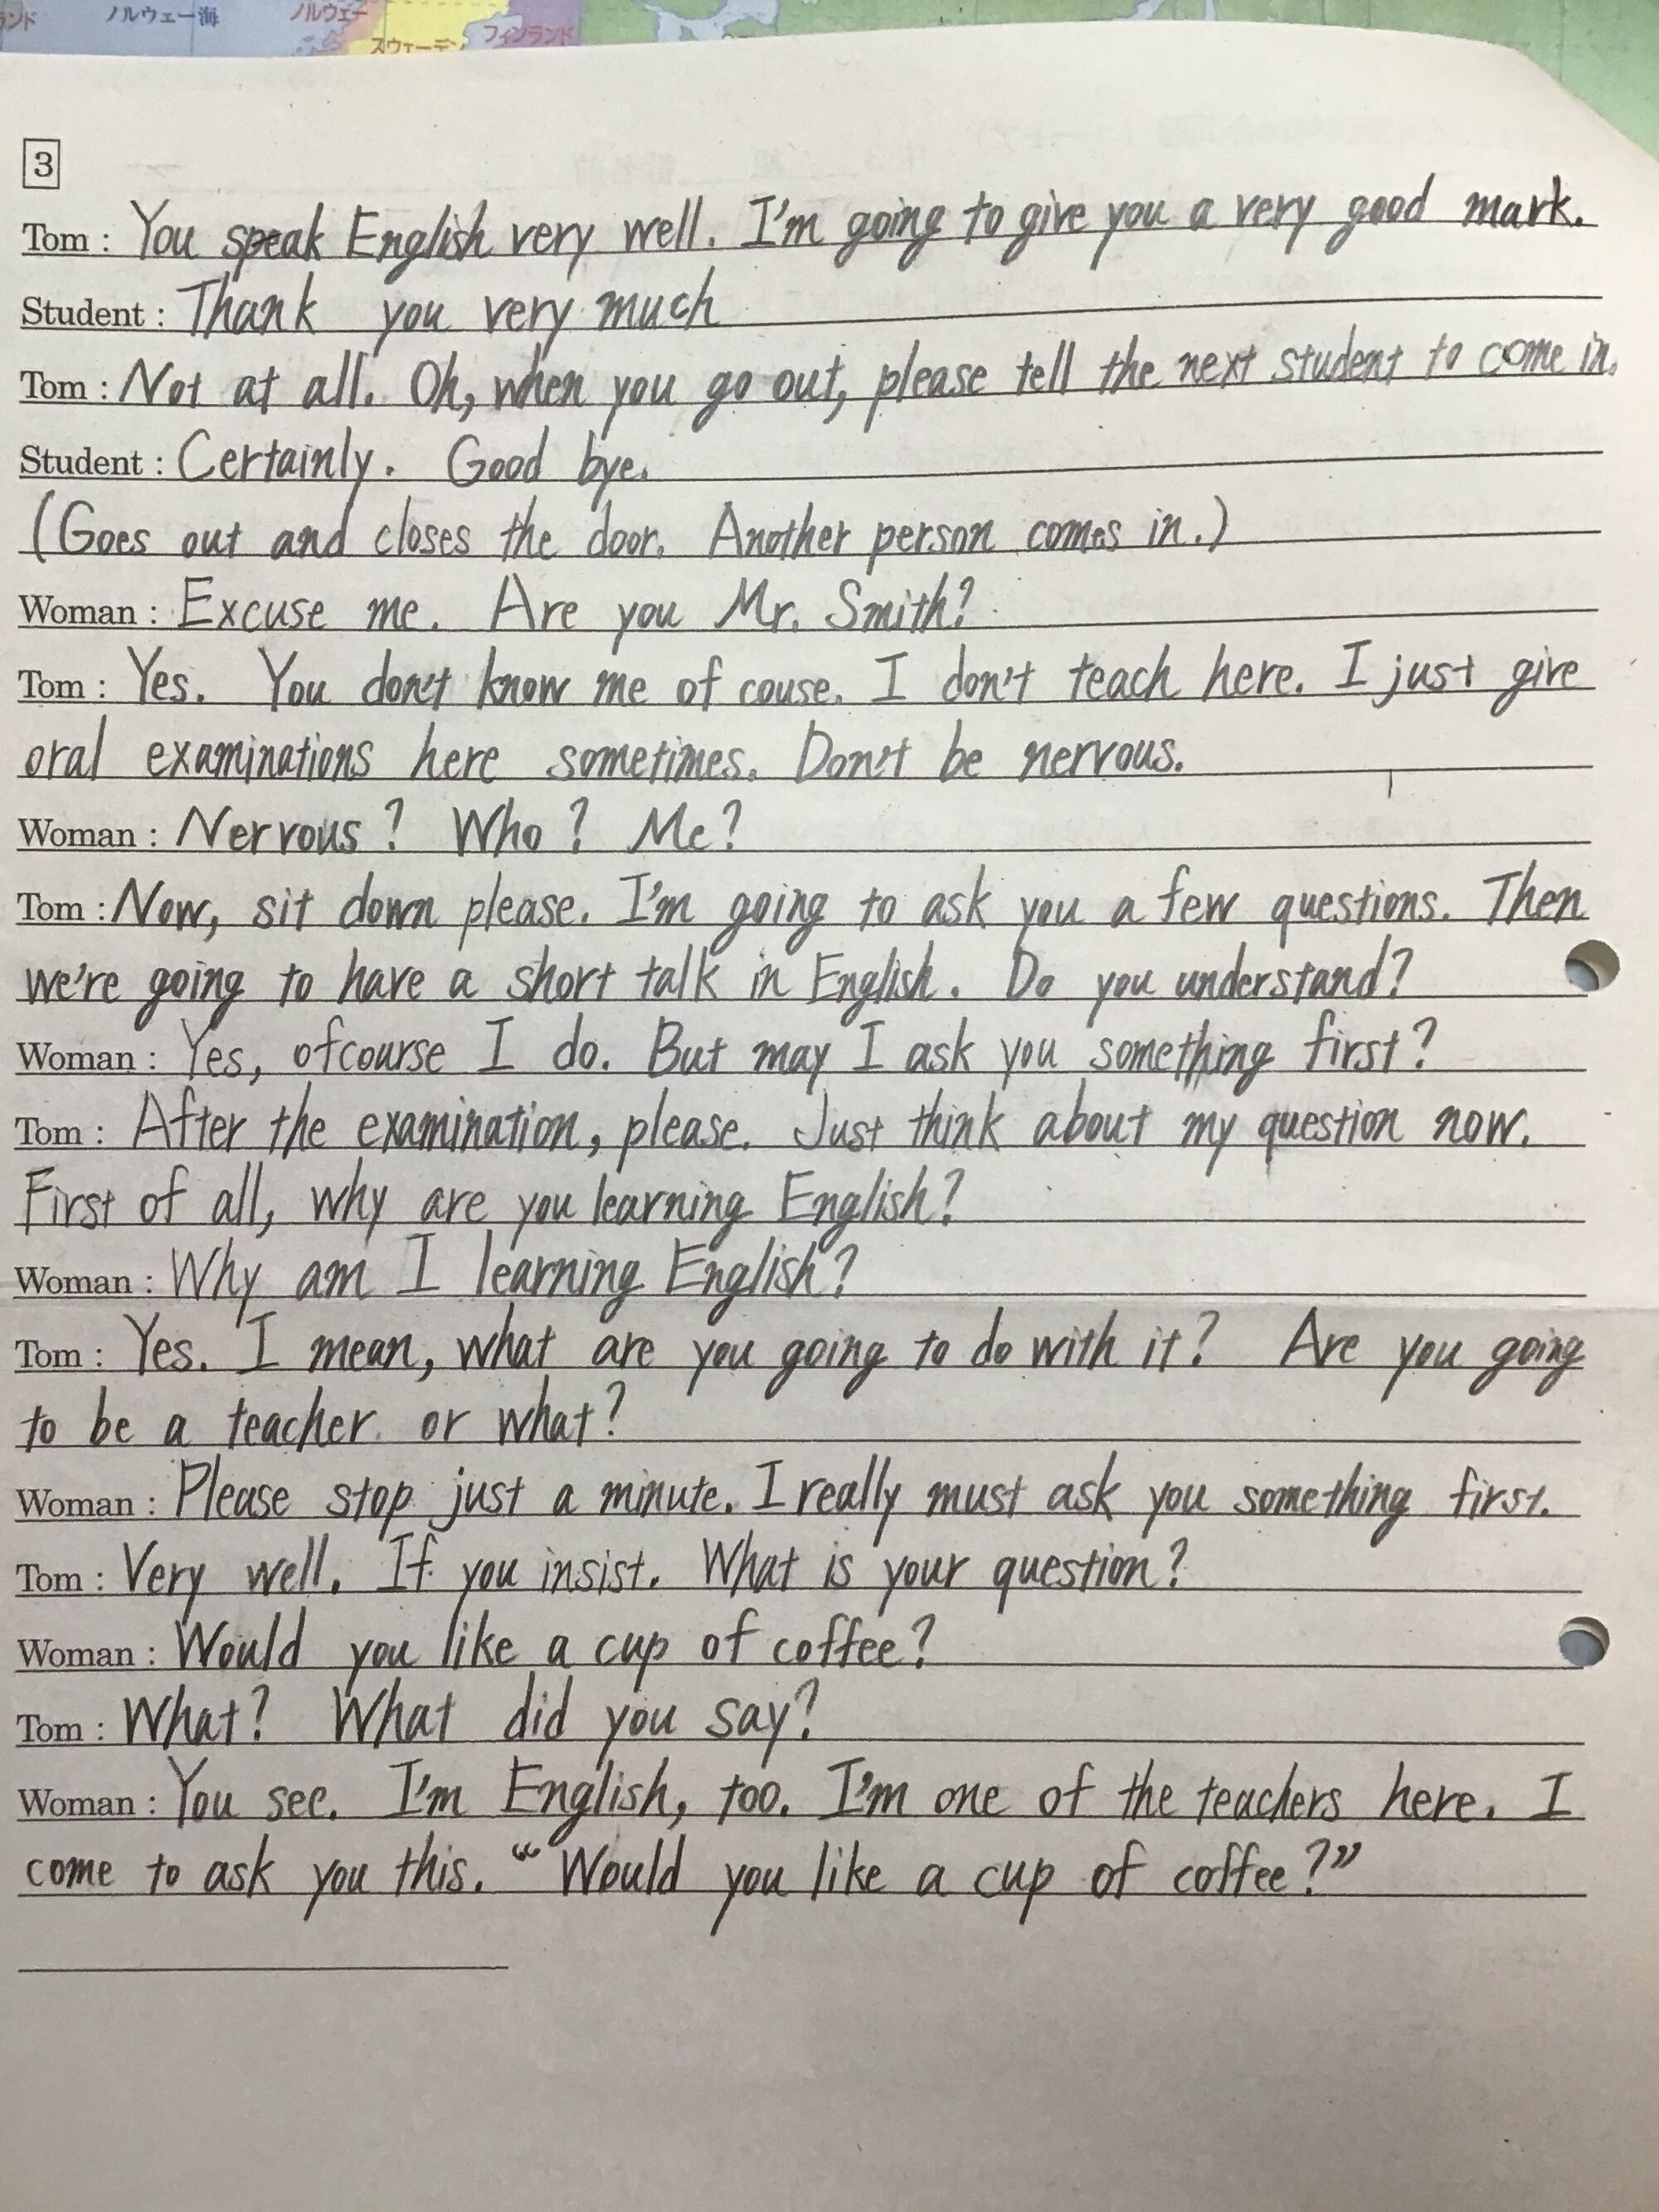 ノルウェー海
ノルウェー
スウェーデン
フィンランド
3
Tom : You speak English very well. I'm going to give you a very good mark.
Student : Thank you very much
Tom : Not at all. Oh, when you go out, please tell the next student to come in.
Student : Certainly. Good bye.
(Goes out and closes the door. Another person comes in.)
Woman : Excuse me. Are you Mr. Smith?
Tom : Yes. You don't know me of couse. I don't teach here. I just give
oral examinations here sometimes. Don't be nervous.
Woman : Nervous? Who? Me?
Tom : Now, sit down please. I'm going to ask you a few questions. Then
we're going to have a short talk in English. Do you understand?
Woman : Yes, ofcourse I do. But may I ask you something first?
Tom : After the examination, please. Just think about my question now.
First of all, why are you learning English?
Woman : Why am I learning English?
Tom : Yes. I mean, what are you going to do with it? Are you going
to be a teacher or what?
Woman : Please stop just a minute. I really must ask you something first.
Tom : Very well. If you insist. What is your question?
Woman : Would you like a cup of coffee?
Tom : What? What did you say?
Woman : You see. I'm English, too. I'm one of the teachers here. I
come to ask you this. “Would you like a cup of coffee?”